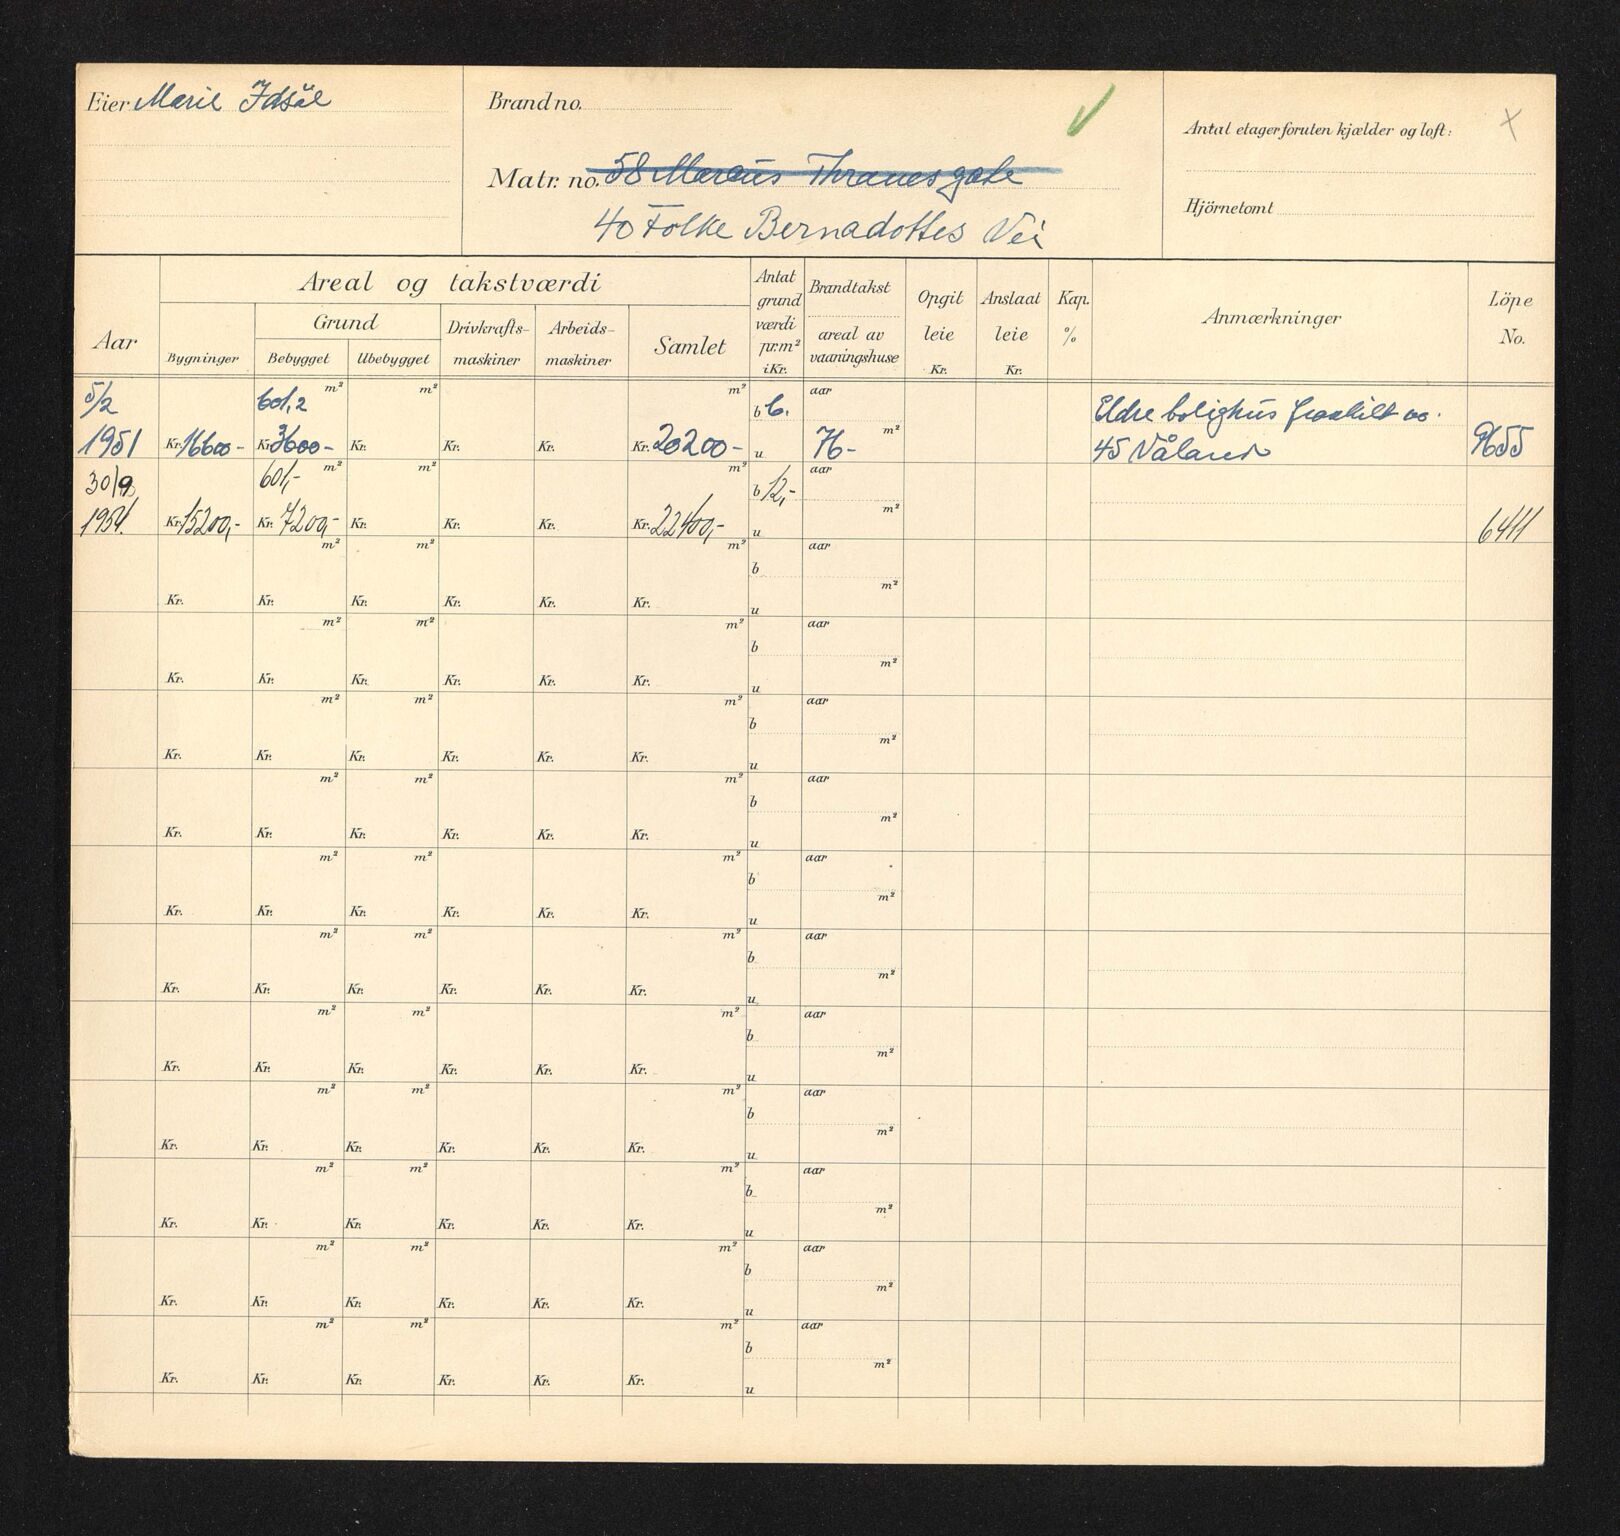 Eier Marie Idsöe
Brand no.
Matr. no. 58 Marcus Thranesgate
40 Folke Bernadottes Vei
Antal etager foruten kjælder og loft:
Hjörnetomt
Areal og takstværdi
Aar
Bygninger
Grund
Bebygget Ubebygget
Drivkrafts-
maskiner
Arbeids-
maskiner
Samlet
Antat
grund
værdi
pr.m²
i Kr.
Brandtakst
areal av
vaaningshuse
Opgit
leie
Kr.
Anslaat
leie
Kr.
Kap.
%
Anmærkninger
Löpe
No.
5/2 601,2 m² m² m² b 6. aar Eldre bolighus fraskilt
1951 Kr. 16600- Kr. 3600- Kr. Kr. Kr. Kr. 20200- u 76- m² 45 Våland 9655
30/9 601,- m² m² m² b 12,- aar
1954. Kr. 15200,- Kr. 7200,- Kr. Kr. Kr. Kr. 22400,- u m² 6411
m² m² m² b aar
Kr. Kr. Kr. Kr. Kr. Kr. u m²
m² m² m² b aar
Kr. Kr. Kr. Kr. Kr. Kr. u m²
m² m² m² b aar
Kr. Kr. Kr. Kr. Kr. Kr. u m²
m² m² m² b aar
Kr. Kr. Kr. Kr. Kr. Kr. u m²
m² m² m² b aar
Kr. Kr. Kr. Kr. Kr. Kr. u m²
m² m² m² b aar
Kr. Kr. Kr. Kr. Kr. Kr. u m²
m² m² m² b aar
Kr. Kr. Kr. Kr. Kr. Kr. u m²
m² m² m² b aar
Kr. Kr. Kr. Kr. Kr. Kr. u m²
m² m² m² b aar
Kr. Kr. Kr. Kr. Kr. Kr. u m²
m² m² m² b aar
Kr. Kr. Kr. Kr. Kr. Kr. u m²
m² m² m² b aar
Kr. Kr. Kr. Kr. Kr. Kr. u m²